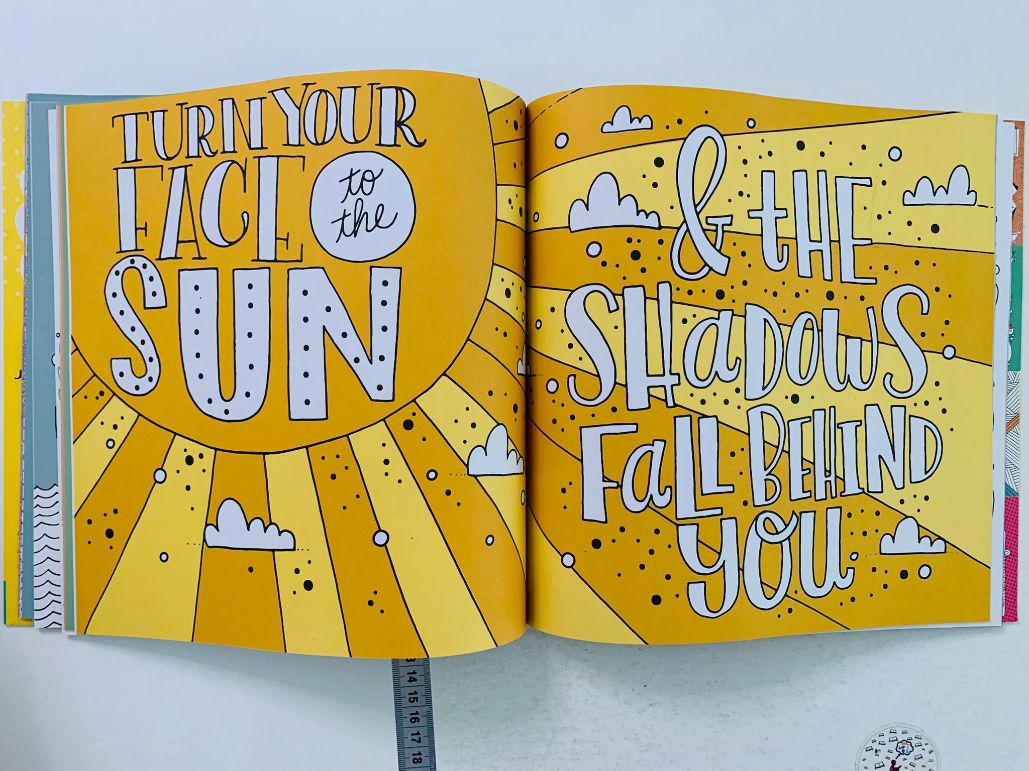 TURN YOUR
FACE to
the
SUN
& tHE
SHaDOWS
FaLL BEHIND
YOU.
13
14
15
16
17
18